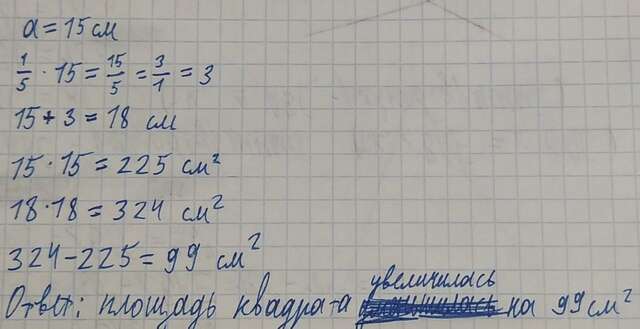 a = 15 см
1/5 · 15 = 15/5 = 3/1 = 3
15 + 3 = 18 см
15 · 15 = 225 см²
18 · 18 = 324 см²
324 - 225 = 99 см²
Ответ: площадь квадрата увеличилась на 99 см²